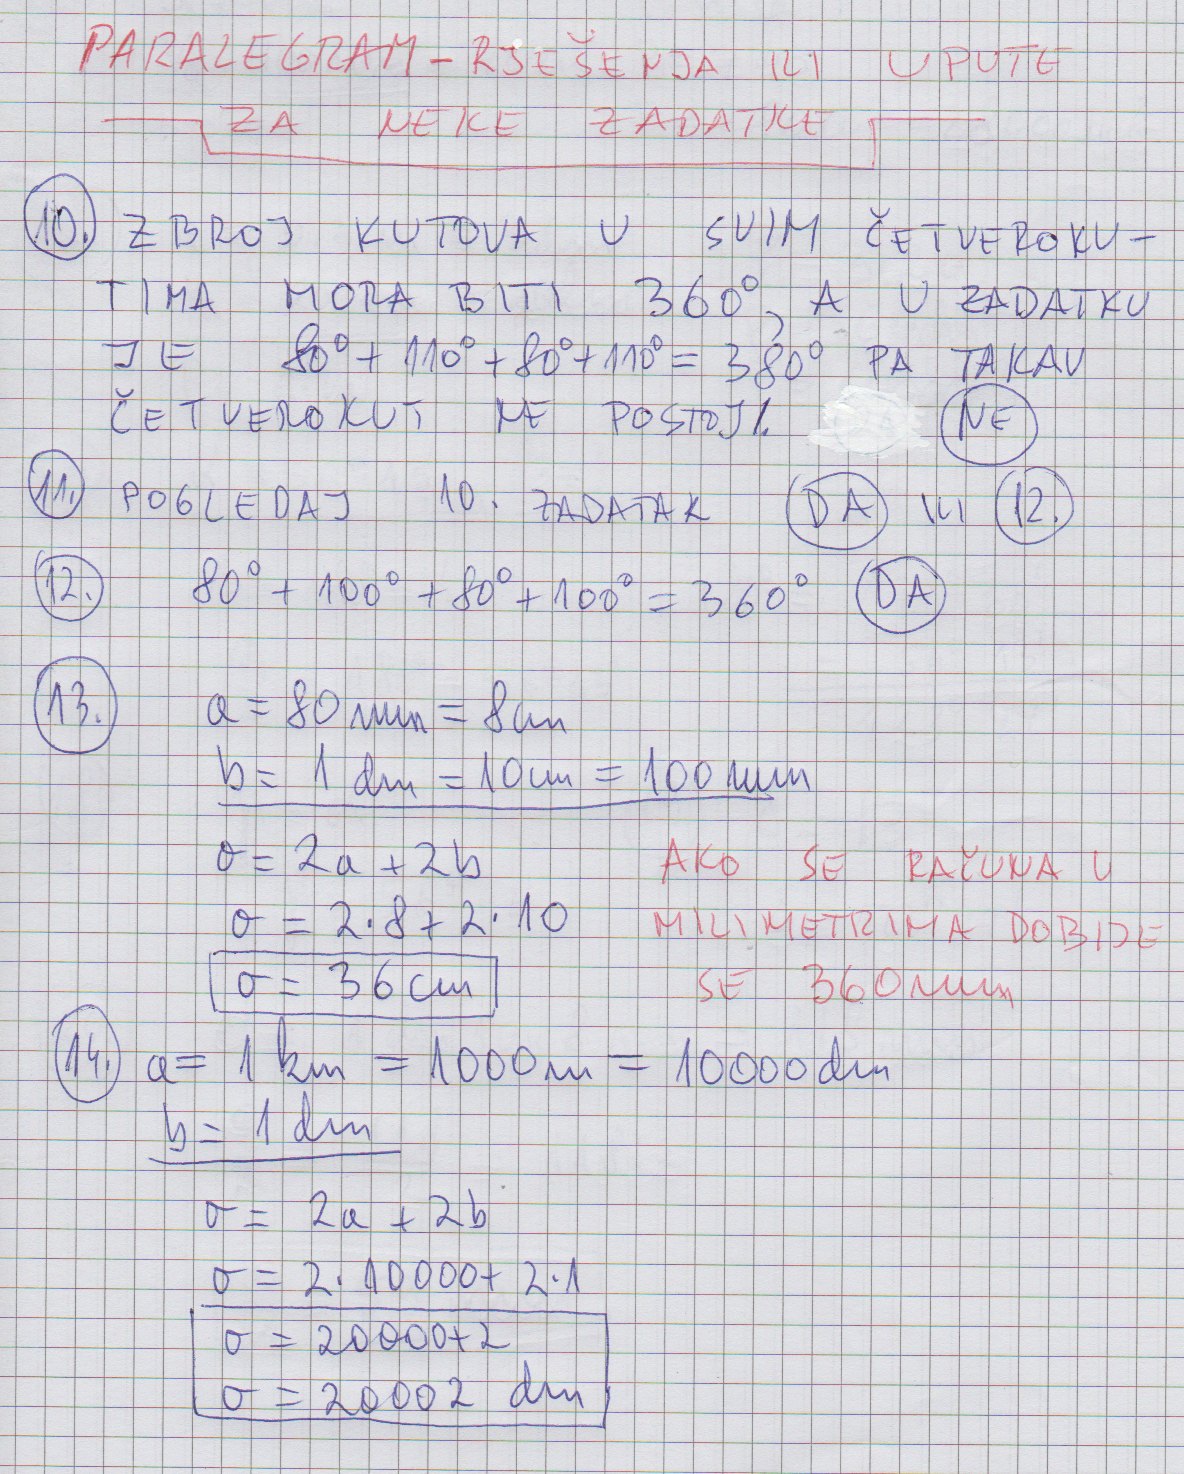 PARALEGRAM - RJEŠENJA ILI UPUTE
ZA NEKE ZADATKE
10. ZBROJ KUTOVA U SVIM ČETVEROKU-
TIMA MORA BITI 360°, A U ZADATKU
JE 80° + 110° + 80° + 110° = 380° PA TAKAV
ČETVEROKUT NE POSTOJI. NE
11. POGLEDAJ 10. ZADATAK DA ILI 12.
12. 80° + 100° + 80° + 100° = 360° DA
13. a = 80 mm = 8 cm
b = 1 dm = 10 cm = 100 mm
σ = 2a + 2b AKO SE RAČUNA U
σ = 2·8 + 2·10 MILIMETRIMA DOBIJE
σ = 36 cm SE 360 mm
14. a = 1 km = 1000 m = 10000 dm
b = 1 dm
σ = 2a + 2b
σ = 2·10000 + 2·1
σ = 20000 + 2
σ = 20002 dm